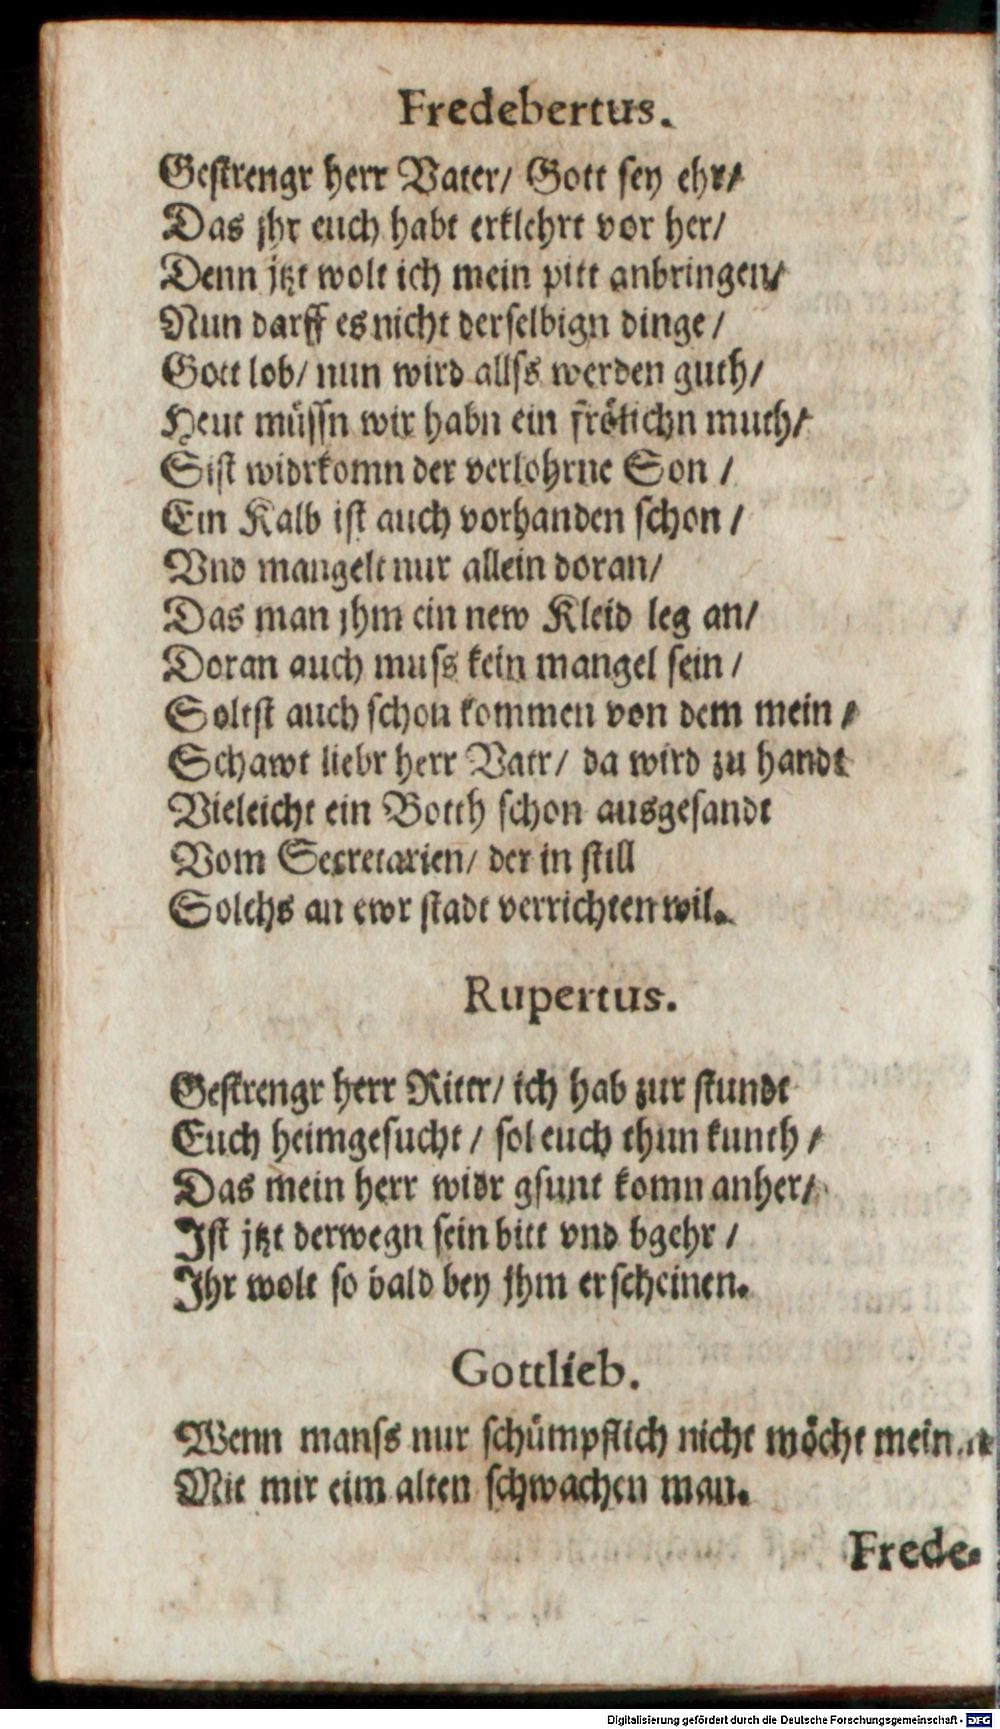 Fredebertus.
Gestrengr herr Vater/ Gott sey ehr/
Das jhr euch habt erklehrt vor her/
Denn jtzt wolt ich mein pitt anbringen/
Nun darff es nicht derselbign dinge/
Gott lob/ nun wird allss werden guth/
Heut müssn wir habn ein frölichn muth/
Sist widrkomn der verlohrne Son/
Ein Kalb ist auch vorhanden schon/
Vnd mangelt nur allein doran/
Das man jhm ein new Kleid leg an/
Doran auch muss kein mangel sein/
Soltst auch schon kommen von dem mein/
Schawt liebr herr Vatr/ da wird zu handt
Vieleicht ein Botth schon ausgesandt
Vom Secretarien/ der in still
Solchs an ewr stadt verrichten wil.
Rupertus.
Gestrengr herr Ritter/ ich hab zur stundt
Euch heimgesucht/ sol euch thun kunth/
Das mein herr widr gsunt komn anher/
Ist jtzt derwegn sein bitt vnd bgehr/
Ihr wolt so bald bey jhm erscheinen.
Gottlieb.
Wenn manss nur schümpflich nicht möcht meinen
Mit mir eim alten schwachen man.
Frede-
Digitalisierung gefördert durch die Deutsche Forschungsgemeinschaft - DFG